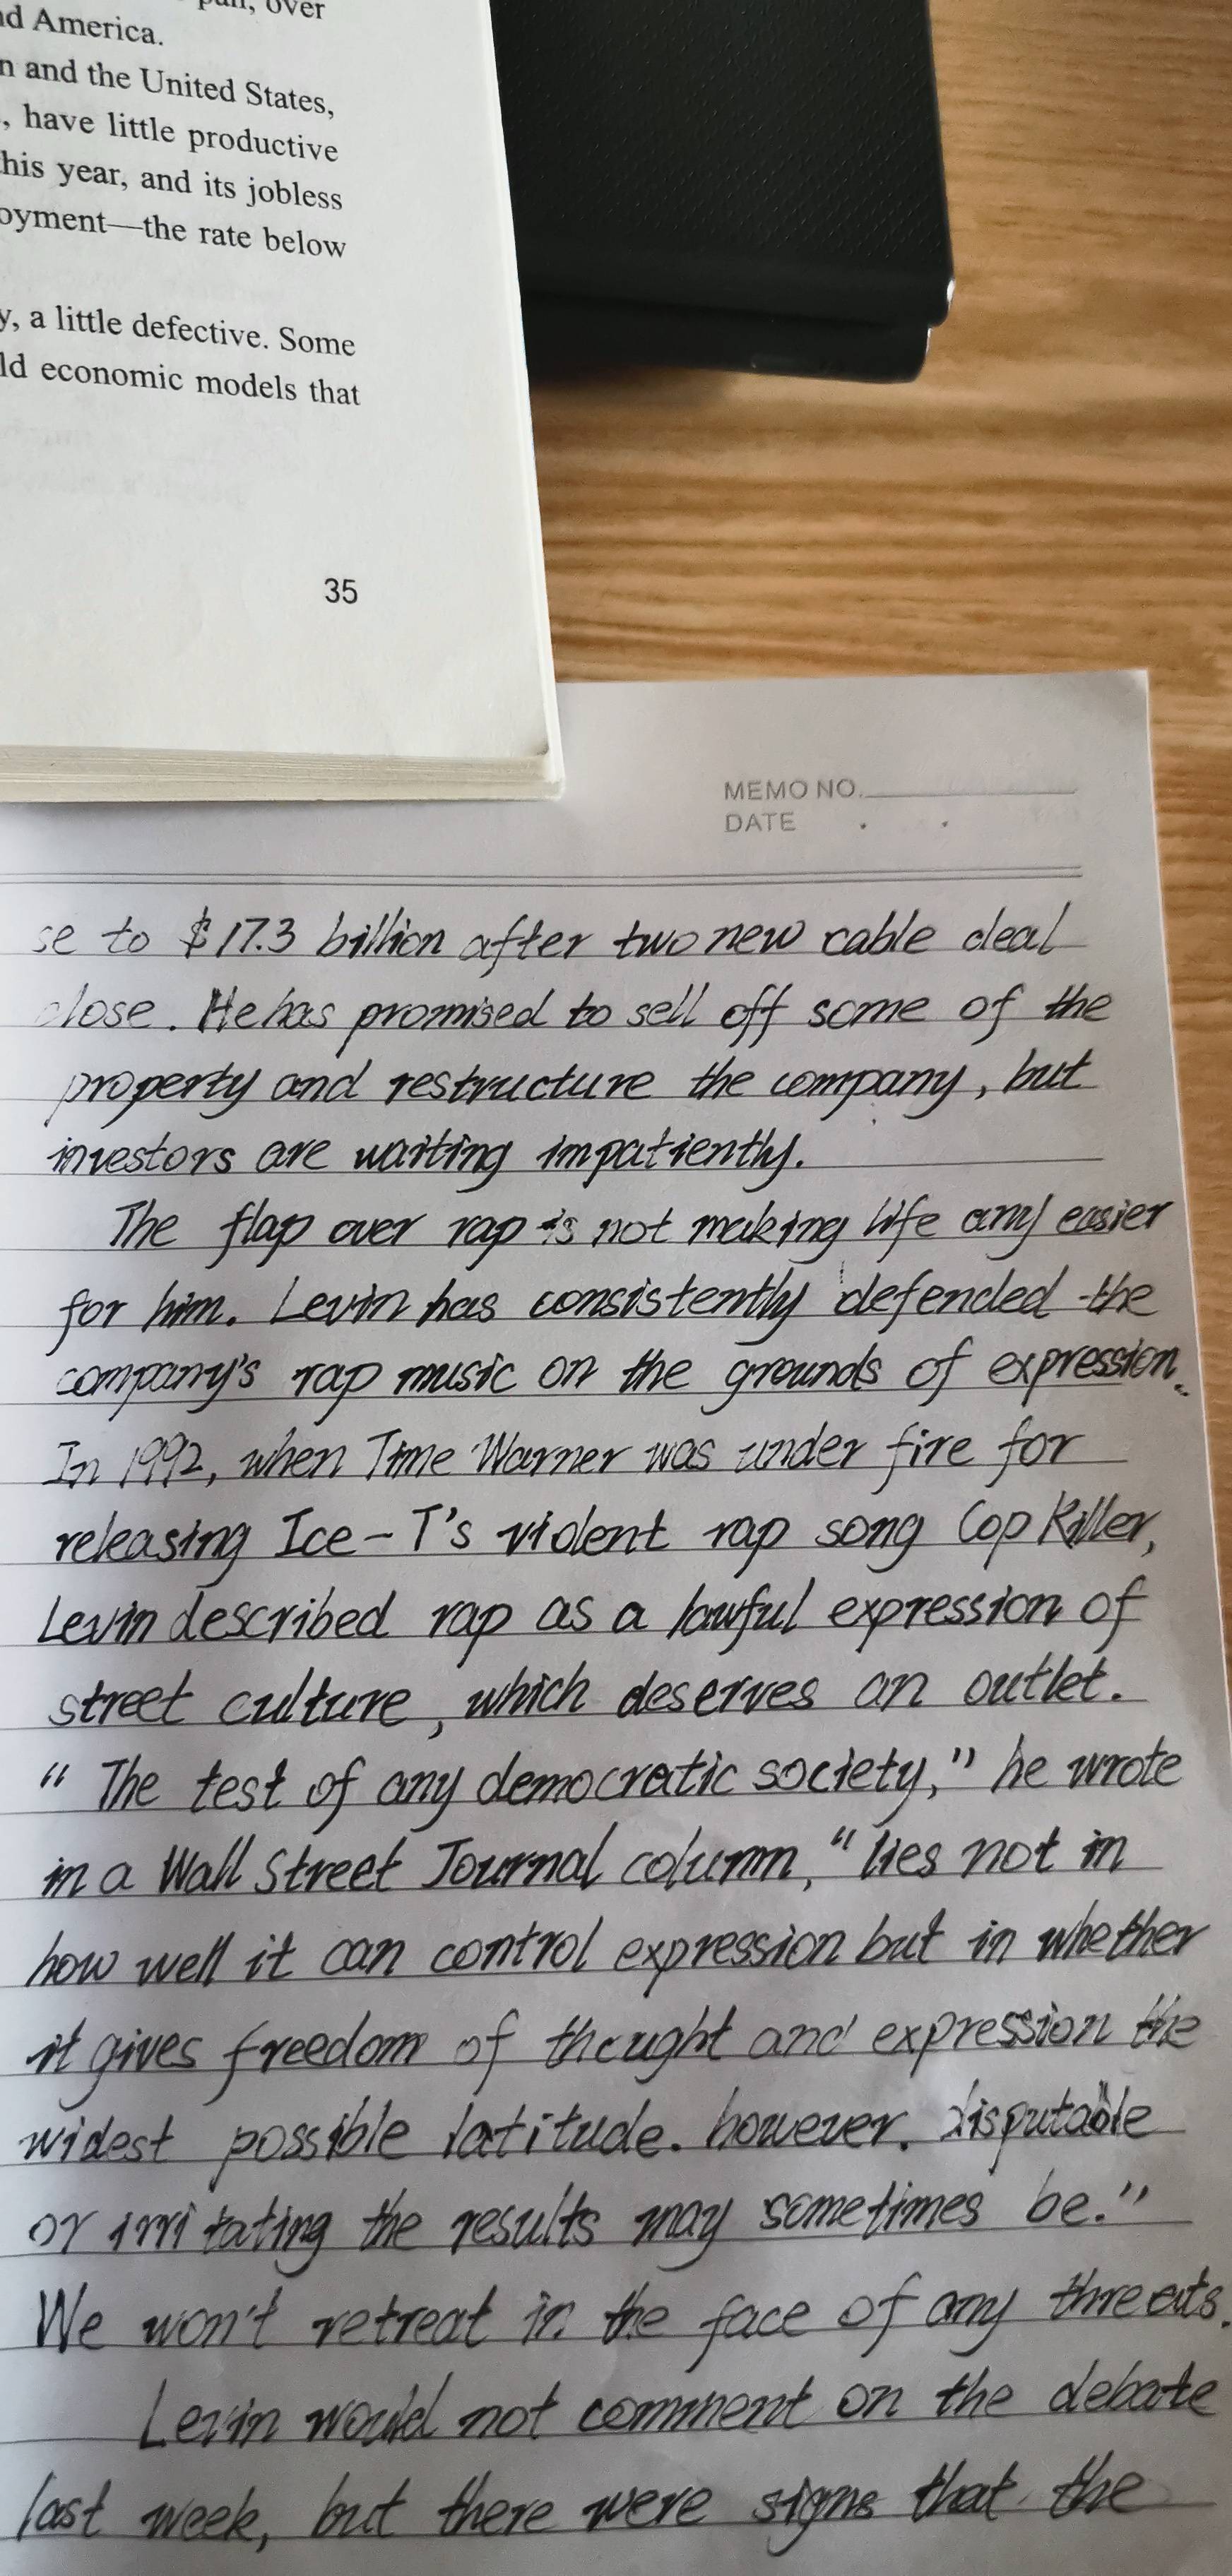 over
America.
and the United States,
, have little productive
his year, and its jobless
—the rate below
, a little defective. Some
economic models that
35
MEMO NO.
DATE . .
se to $17.3 billion after two new cable deal
close. He has promised to sell off some of the
property and restructure the company, but
investors are waiting impatiently.
The flap over rap is not making life any easier
for him. Levin has consistently defended the
company's rap music on the grounds of expression.
In 1992, when Time Warner was under fire for
releasing Ice-T's violent rap song Cop Killer,
Levin described rap as a lawful expression of
street culture, which deserves an outlet.
"The test of any democratic society," he wrote
in a Wall Street Journal column, "lies not in
how well it can control expression but in whether
it gives freedom of thought and expression the
widest possible latitude. however. disputable
or irritating the results may sometimes be."
We won't retreat in the face of any threats.
Levin would not comment on the debate
last week, but there were signs that the